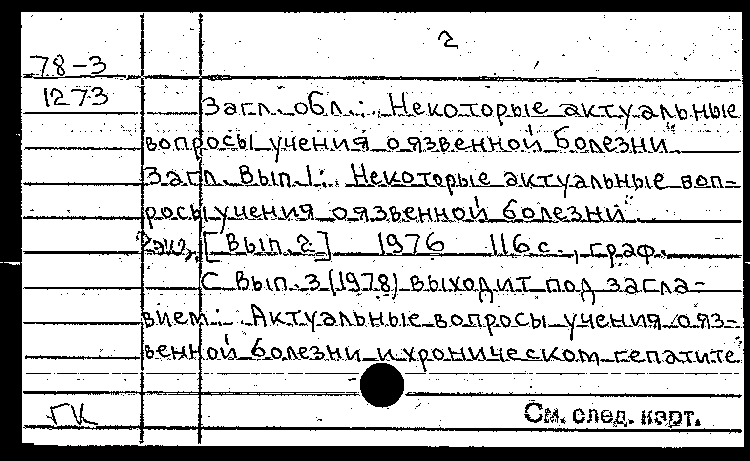 2
78-3
1273
Загл. обл.: „Некоторые актуальные
вопросы учения о язвенной болезни"
Загл. Вып. 1: „Некоторые актуальные воп-
росы учения о язвенной болезни"
2экз. [Вып. 2] 1976 116 с., граф.
С Вып. 3 (1978) выходит под загла-
вием: „Актуальные вопросы учения о яз-
венной болезни и хроническом гепатите"
ГК
См. след. карт.